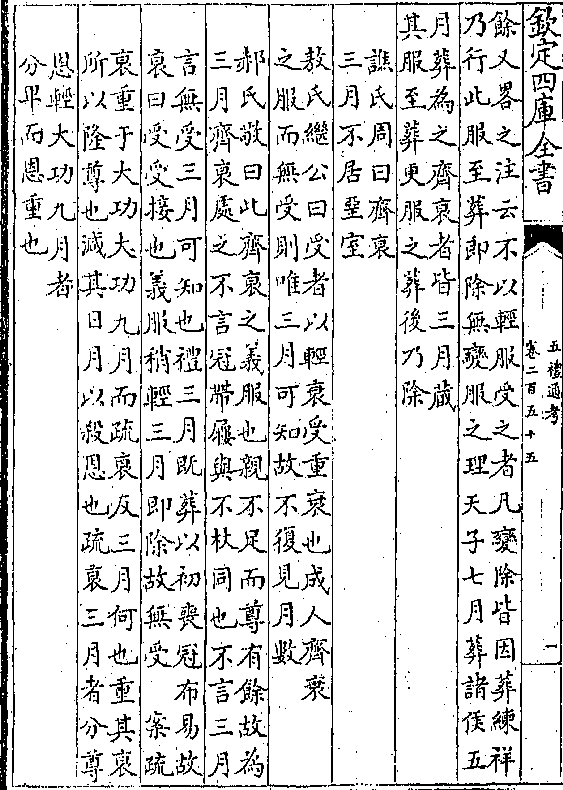 欽定四庫全書
五禮通考
卷二百五十五
一
餘又畧之注云不以輕服受之者凡變除皆因葬練祥
乃行此服至葬即除無變服之理天子七月葬諸侯五
月葬為之齊衰者皆三月蔵
其服至葬更服之葬後乃除
譙氏周曰齊衰
三月不居堊室
敖氏繼公曰受者以輕衰受重衰也成人齊衰
之服而無受則唯三月可知故不復見月數
郝氏敬曰此齊衰之義服也親不足而尊有餘故為
三月齊衰處之不言冠帶屨與不杖同也不言三月
言無受三月可知也禮三月既葬以初喪冠布易故
衰曰受受接也義服稍輕三月即除故無受 案疏
衰重于大功大功九月而疏衰反三月何也重其衰
所以隆尊也減其日月以殺恩也疏衰三月者分尊
恩輕大功九月者
分卑而恩重也